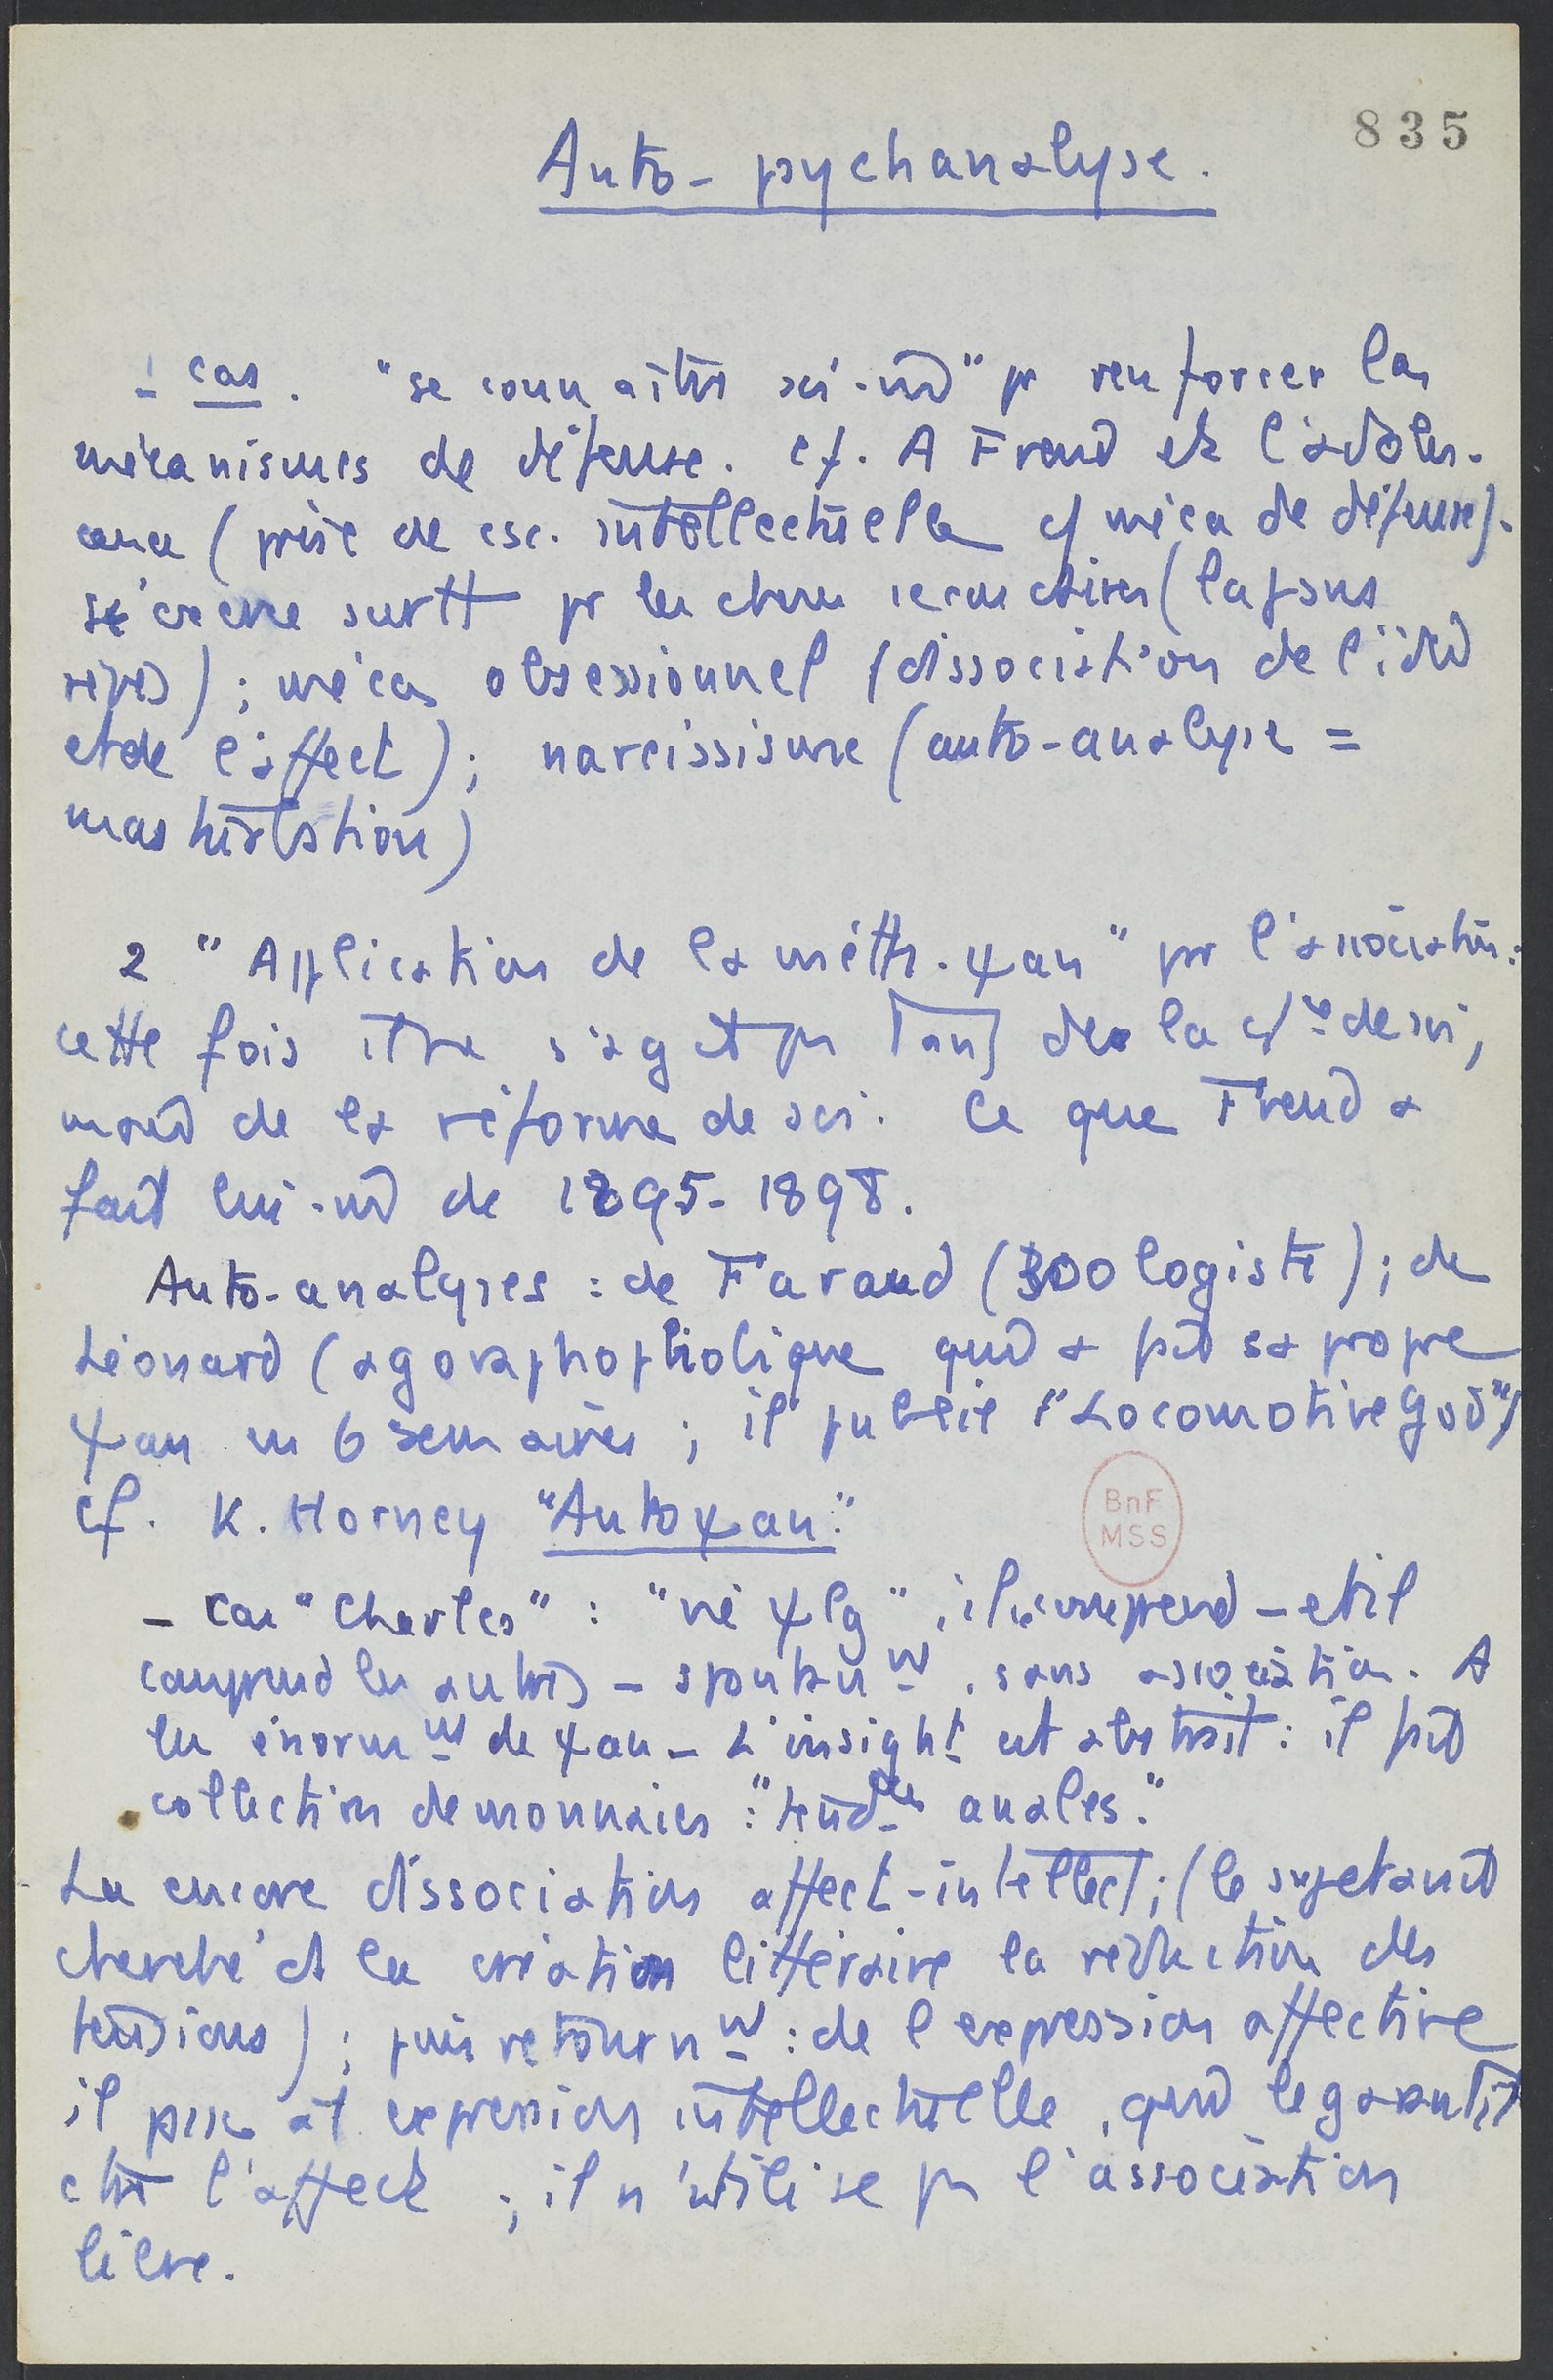 835
Auto-psychanalyse.
1 cas. "se connaître soi-m̂" pr renforcer les
mécanismes de défense. cf. A Freud et l'adoles-
cence (prise de csc. intellectuelle c/ méca de défense).
s'exerce surtt pr les choses (lapsus
rêves) ; mécas obsessionnel (dissociation de l'idée
et de l'affect) ; narcissisme (auto-analyse =
masturbation)
2 "Application de la méth. ψan" pr l'association :
cette fois il ne s'agit pas de la csc de soi,
mais de la réforme de soi. Ce que Freud a
fait lui-m̂ de 1895-1898.
Auto-analyses : de Faraud (zoologiste) ; de
Léonard (agoraphophobique qui a fait sa propre
ψan en 6 semaines ; il publie "Locomotive God")
cf. K. Horney "Autoψan."
- Cas "Charles" : "né ψlg", il se comprend - et il
comprend les autres - spontanmt, sans association. A
lu énormmt de ψan - L'insight est abstrait : il fait
collection de monnaies : "tendces anales."
Là encore dissociation affect-intellect ; (le sujet avait
cherché ds la création littéraire la réduction des
tensions) ; puis retournmt : de l'expression affective
il passe à l'expression intellectuelle, qui le garantit
ctre l'affect ; il n'utilise pas l'association
libre.
BnF
MSS